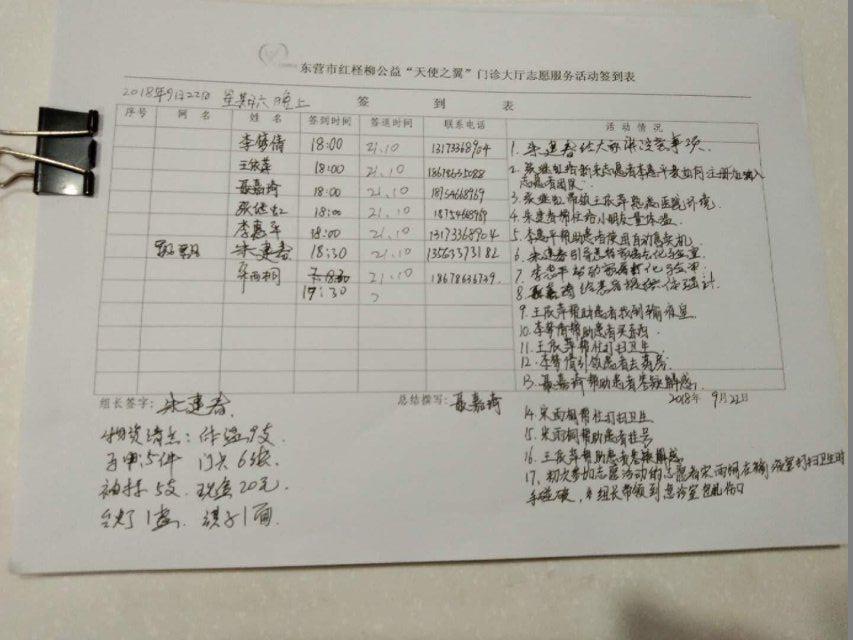 东营市红柽柳公益“天使之翼”门诊大厅志愿服务活动签到表
2018年9月22日 星期六 晚上 签 到 表
序号 网 名 姓 名 签到时间 签退时间 联系电话 活 动 情 况
李梦倩 18:00 21.10 13173368904
王依萍 18:00 21.10 18678655088
聂嘉琦 18:00 21.10 18754668969
张继虹 18:00 21.10 18754668969
李惠平 18:00 21.10 13173368904
朱建春 18:30 21.10 13563373182
宋雨桐 21.10 18678636739.
17:30
1. 朱建春给大家讲注意事项
2. 张继虹给新来志愿者李惠平教如何注册加入
志愿者团队.
3. 张继虹带领王依萍熟悉医院环境.
4. 朱建春帮忙给小朋友量体温.
5. 李惠平帮助患者使用自动售卖机.
6. 朱建春引导患者
7. 李惠平帮助患者打化验单.
8. 聂嘉琦给患者
9. 王依萍帮助患者找到输液室.
10. 李梦倩帮助患者买东西.
11. 王依萍帮忙打扫卫生.
12. 李梦倩引领患者去病房.
13. 聂嘉琦帮助患者答疑解惑.
组长签字: 朱建春. 总结撰写: 聂嘉琦 2018年 9月22日
物资清点: 体温9支.
马甲:5件 门卡6张.
袖标5支. 现金20元.
台灯1盏. 旗子1面.
14. 宋雨桐帮忙打扫卫生
15. 宋雨桐帮助患者挂号
16. 王依萍帮助患者答疑解惑
17. 初次参加志愿活动的志愿者宋雨桐在输液室打扫卫生时
手碰破, 组长带领到急诊室包扎伤口